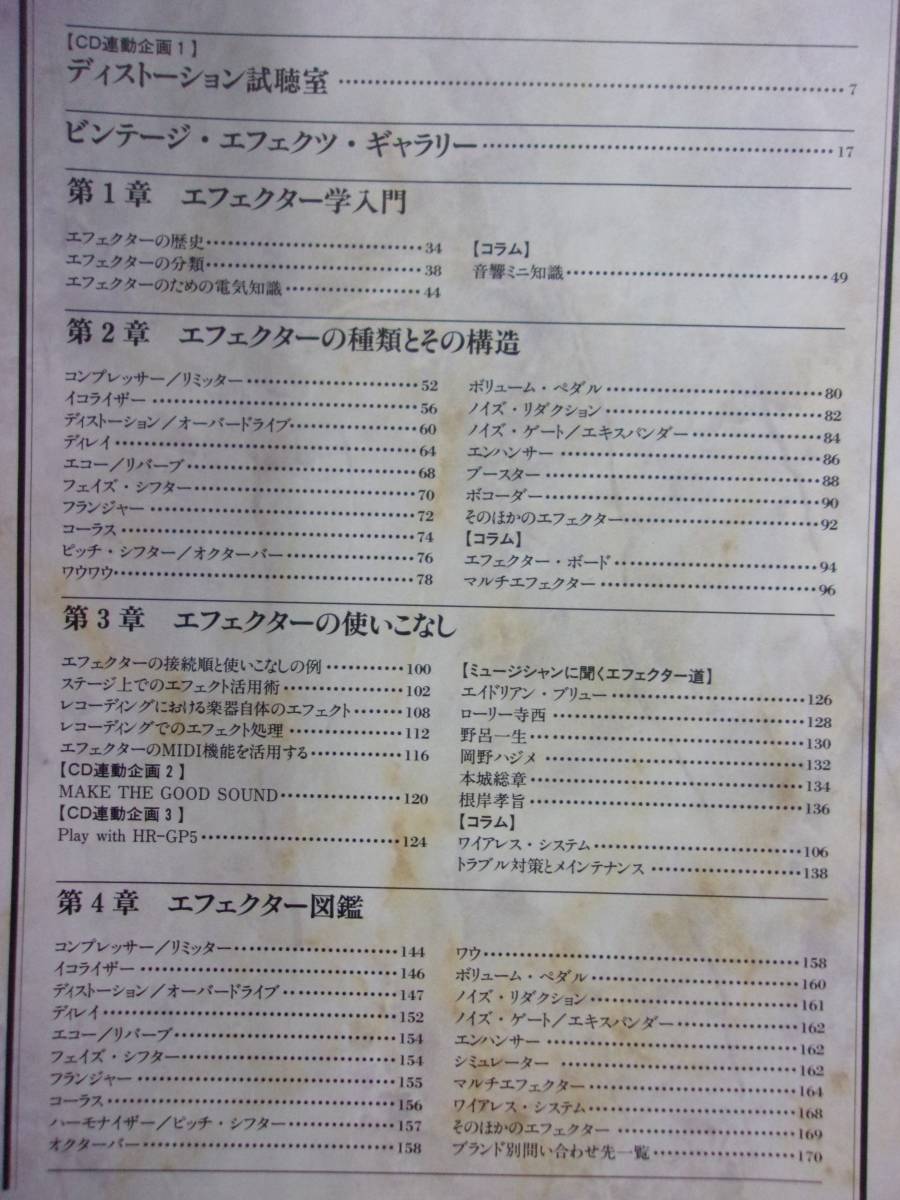 【CD連動企画1】
ディストーション試聴室……7
ビンテージ・エフェクツ・ギャラリー……17
第1章 エフェクター学入門
エフェクターの歴史……34
エフェクターの分類……38
エフェクターのための電気知識……44
【コラム】
音響ミニ知識……49
第2章 エフェクターの種類とその構造
コンプレッサー/リミッター……52
イコライザー……56
ディストーション/オーバードライブ……60
ディレイ……64
エコー/リバーブ……68
フェイズ・シフター……70
フランジャー……72
コーラス……74
ピッチ・シフター/オクターバー……76
ワウワウ……78
ボリューム・ペダル……80
ノイズ・リダクション……82
ノイズ・ゲート/エキスパンダー……84
エンハンサー……86
ブースター……88
ボコーダー……90
そのほかのエフェクター……92
【コラム】
エフェクター・ボード……94
マルチエフェクター……96
第3章 エフェクターの使いこなし
エフェクターの接続順と使いこなしの例……100
ステージ上でのエフェクト活用術……102
レコーディングにおける楽器自体のエフェクト……108
レコーディングでのエフェクト処理……112
エフェクターのMIDI機能を活用する……116
【CD連動企画2】
MAKE THE GOOD SOUND……120
【CD連動企画3】
Play with HR-GP5……124
【ミュージシャンに聞くエフェクター道】
エイドリアン・ブリュー……126
ローリー寺西……128
野呂一生……130
岡野ハジメ……132
本城総章……134
根岸孝旨……136
【コラム】
ワイアレス・システム……106
トラブル対策とメインテナンス……138
第4章 エフェクター図鑑
コンプレッサー/リミッター……144
イコライザー……146
ディストーション/オーバードライブ……147
ディレイ……152
エコー/リバーブ……154
フェイズ・シフター……154
フランジャー……155
コーラス……156
ハーモナイザー/ピッチ・シフター……157
オクターバー……158
ワウ……158
ボリューム・ペダル……160
ノイズ・リダクション……161
ノイズ・ゲート/エキスパンダー……162
エンハンサー……162
シミュレーター……162
マルチエフェクター……164
ワイアレス・システム……168
そのほかのエフェクター……169
ブランド別問い合わせ先一覧……170